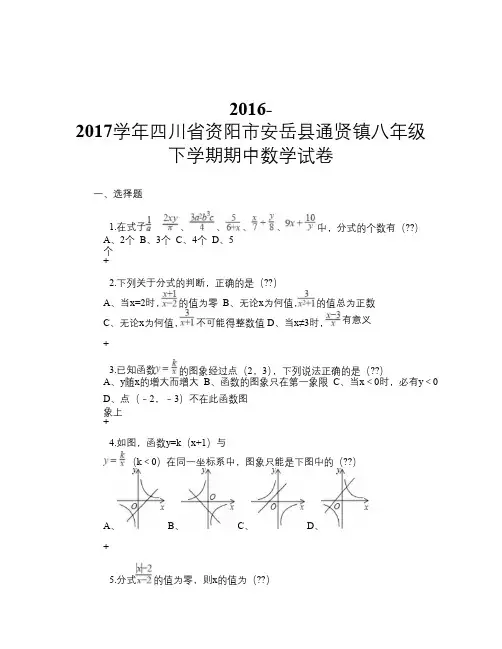 2016-
2017学年四川省资阳市安岳县通贤镇八年级
下学期期中数学试卷
一、选择题
1.在式子 1/a、2xy/π、3a²b³c/4、5/6+x、x/7+y/8、9x+10/y 中，分式的个数有（??）
A、2个 B、3个 C、4个 D、5
个
+
2.下列关于分式的判断，正确的是（??）
A、当x=2时，x+1/x−2 的值为零 B、无论x为何值，3/x²+1 的值总为正数
C、无论x为何值，3/x+1 不可能得整数值 D、当x≠3时，x−3/x 有意义
+
3.已知函数y = k/x 的图象经过点（2，3），下列说法正确的是（??）
A、y随x的增大而增大 B、函数的图象只在第一象限 C、当x﹤0时，必有y﹤0
D、点（﹣2，﹣3）不在此函数图
象上
+
4.如图，函数y=k（x+1）与
y = k/x （k﹤0）在同一坐标系中，图象只能是下图中的（??）
y y y y
O x O x O x O x
A、 B、 C、 D、
+
5.分式 |x|−2/x−2 的值为零，则x的值为（??）